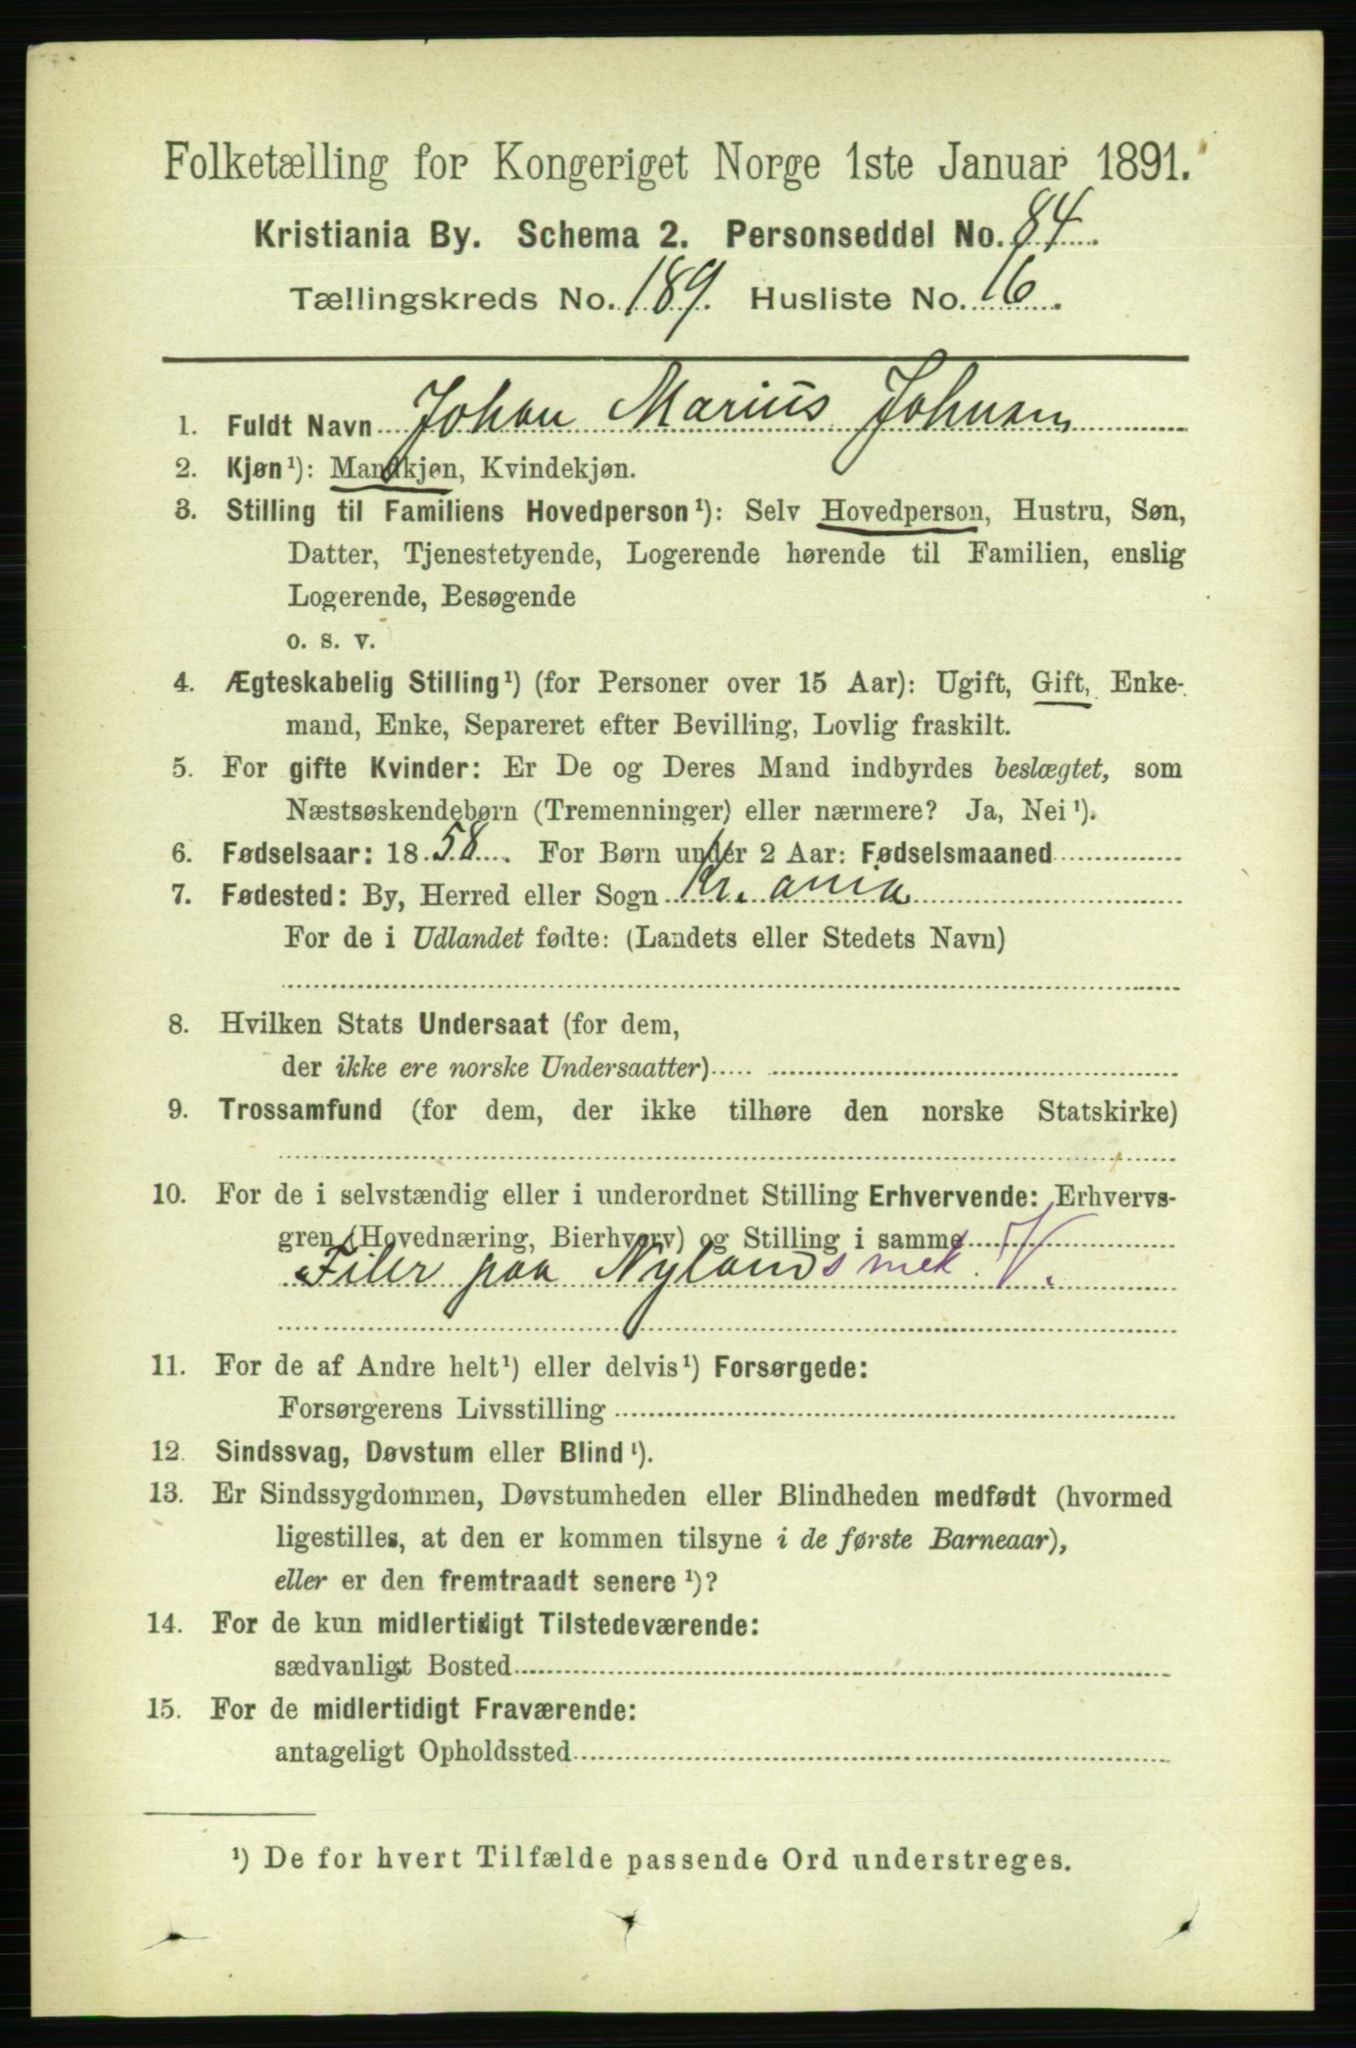 Folketælling for Kongeriget Norge 1ste Januar 1891.
Kristiania By. Schema 2. Personseddel No. 84.
Tællingskreds No. 189. Husliste No. 16.
1. Fuldt Navn Johan Marius Johnsen
2. Kjøn¹): Mandkjøn, Kvindekjøn.
3. Stilling til Familiens Hovedperson¹): Selv Hovedperson, Hustru, Søn,
Datter, Tjenestetyende, Logerende hørende til Familien, enslig
Logerende, Besøgende
o. s. v.
4. Ægteskabelig Stilling¹) (for Personer over 15 Aar): Ugift, Gift, Enke-
mand, Enke, Separeret efter Bevilling, Lovlig fraskilt.
5. For gifte Kvinder: Er De og Deres Mand indbyrdes beslægtet, som
Næstsøskendebørn (Tremenninger) eller nærmere? Ja, Nei¹).
6. Fødselsaar: 1858. For Børn under 2 Aar: Fødselsmaaned
7. Fødested: By, Herred eller Sogn Kr.ania
For de i Udlandet fødte: (Landets eller Stedets Navn)
8. Hvilken Stats Undersaat (for dem,
der ikke ere norske Undersaatter)
9. Trossamfund (for dem, der ikke tilhøre den norske Statskirke)
10. For de i selvstændig eller i underordnet Stilling Erhvervende: Erhvervs-
gren (Hovednæring, Bierhverv) og Stilling i samme
Filer paa Nylands mek. V.
11. For de af Andre helt¹) eller delvis¹) Forsørgede:
Forsørgerens Livsstilling
12. Sindssvag, Døvstum eller Blind¹).
13. Er Sindssygdommen, Døvstumheden eller Blindheden medfødt (hvormed
ligestilles, at den er kommen tilsyne i de første Barneaar),
eller er den fremtraadt senere¹)?
14. For de kun midlertidigt Tilstedeværende:
sædvanligt Bosted
15. For de midlertidigt Fraværende:
antageligt Opholdssted
¹) De for hvert Tilfælde passende Ord understreges.